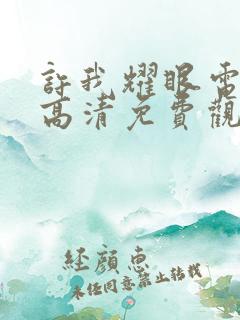 許我耀眼電
高清免費觀
経顔惠
未经同意禁止转载